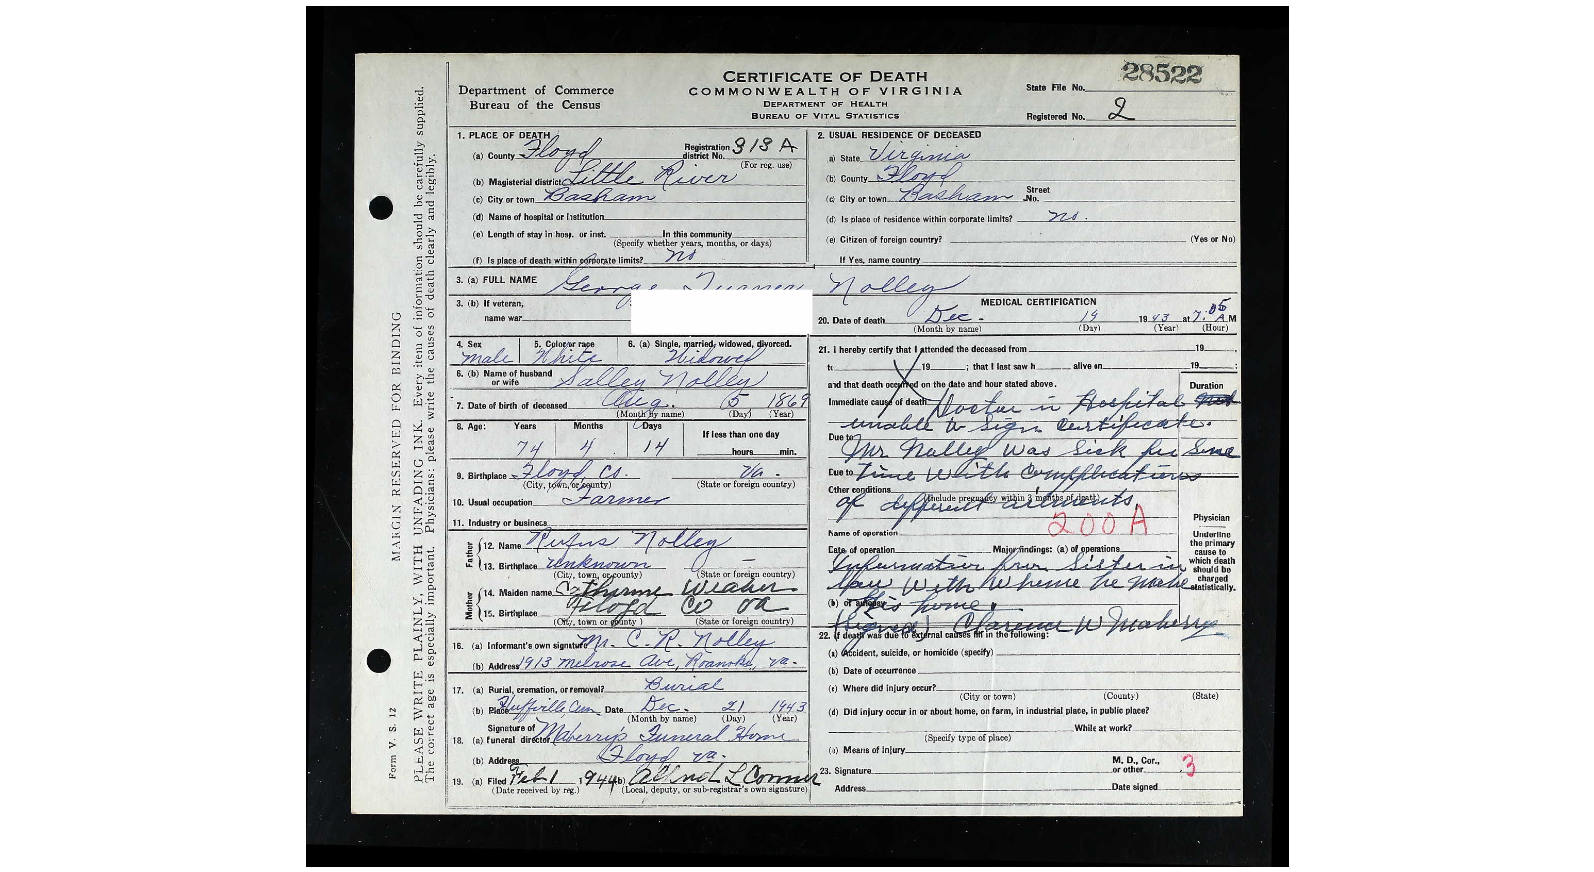 28522
CERTIFICATE OF DEATH
Department of Commerce
Bureau of the Census
COMMONWEALTH OF VIRGINIA
DEPARTMENT OF HEALTH
BUREAU OF VITAL STATISTICS
State File No.
Registered No. 2
MARGIN RESERVED FOR BINDING
PLEASE WRITE PLAINLY, WITH UNFADING INK. Every item of information should be carefully supplied.
The correct age is especially important. Physicians: please write the causes of death clearly and legibly.
Form V. S. 12
1. PLACE OF DEATH
(a) County Floyd Registration district No. 318 A
(For reg. use)
(b) Magisterial district Little River
(c) City or town Basham
(d) Name of hospital or Institution
(e) Length of stay in hosp. or inst. In this community
(Specify whether years, months, or days)
(f) Is place of death within corporate limits? No
2. USUAL RESIDENCE OF DECEASED
a) State Virginia
(b) County Floyd
(c) City or town Basham Street No.
(d) Is place of residence within corporate limits? no.
(e) Citizen of foreign country? (Yes or No)
If Yes, name country
3. (a) FULL NAME George Turner Nolley
3. (b) If veteran,
name war
4. Sex 5. Color or race 6. (a) Single, married, widowed, divorced.
male White Widowed
6. (b) Name of husband or wife Salley Nolley
7. Date of birth of deceased Aug. 5 1869
(Month by name) (Day) (Year)
8. Age: Years Months Days If less than one day
74 4 14 hours min.
9. Birthplace Floyd Co. Va.
(City, town, or county) (State or foreign country)
10. Usual occupation Farmer
11. Industry or business
Father
12. Name Rufus Nolley
13. Birthplace unknown
(City, town, or county) (State or foreign country)
Mother
14. Maiden name Catharine Weaver
15. Birthplace Floyd Co va
(City, town or county) (State or foreign country)
16. (a) Informant's own signature Mr. C. R. Nolley
(b) Address 1913 Melrose Ave, Roanoke, va.
17. (a) Burial, cremation, or removal? Burial
(b) Place Huffville, Cem. Date Dec. 21 1943
(Month by name) (Day) (Year)
18. (a) Signature of funeral director Maberry's Funeral Home
(b) Address Floyd va.
19. (a) Filed Feb 1, 1944 (b) L Conner
(Date received by reg.) (Local, deputy, or sub-registrar's own signature)
MEDICAL CERTIFICATION
20. Date of death Dec. 19 1943 at 7:05 A M
(Month by name) (Day) (Year) (Hour)
21. I hereby certify that I attended the deceased from 19
to 19 ; that I last saw h alive on 19 ;
and that death occurred on the date and hour stated above.
Duration
Immediate cause of death Doctor in Hospital
unable to sign certificate.
Due to Mr Nolley was sick for Some
Due to time with complications
Other conditions
(Include pregnancy within 3 months of death)
of different ailments,
200A
Name of operation
Date of operation Major findings: (a) of operations
Information from Sister in
law with whome he made
(b) of autopsy his home.
(Signed) Clarence W Maberry
Physician
Underline
the primary
cause to
which death
should be
charged
statistically.
22. If death was due to external causes fill in the following:
(a) Accident, suicide, or homicide (specify)
(b) Date of occurrence
(c) Where did injury occur?
(City or town) (County) (State)
(d) Did injury occur in or about home, on farm, in industrial place, in public place?
While at work?
(Specify type of place)
(e) Means of injury
23. Signature M. D., Cor., or other 3
Address Date signed